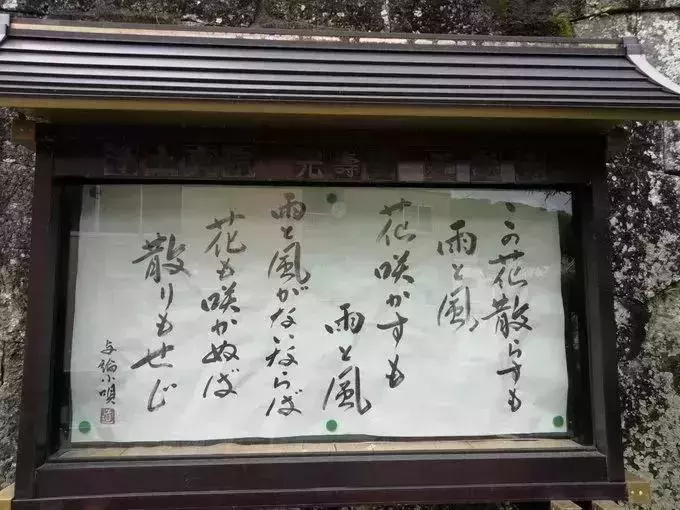 この花散らすも
雨と風
花咲かすも
雨と風
雨と風がないならば
花も咲かぬば
散りもせじ
与論小唄